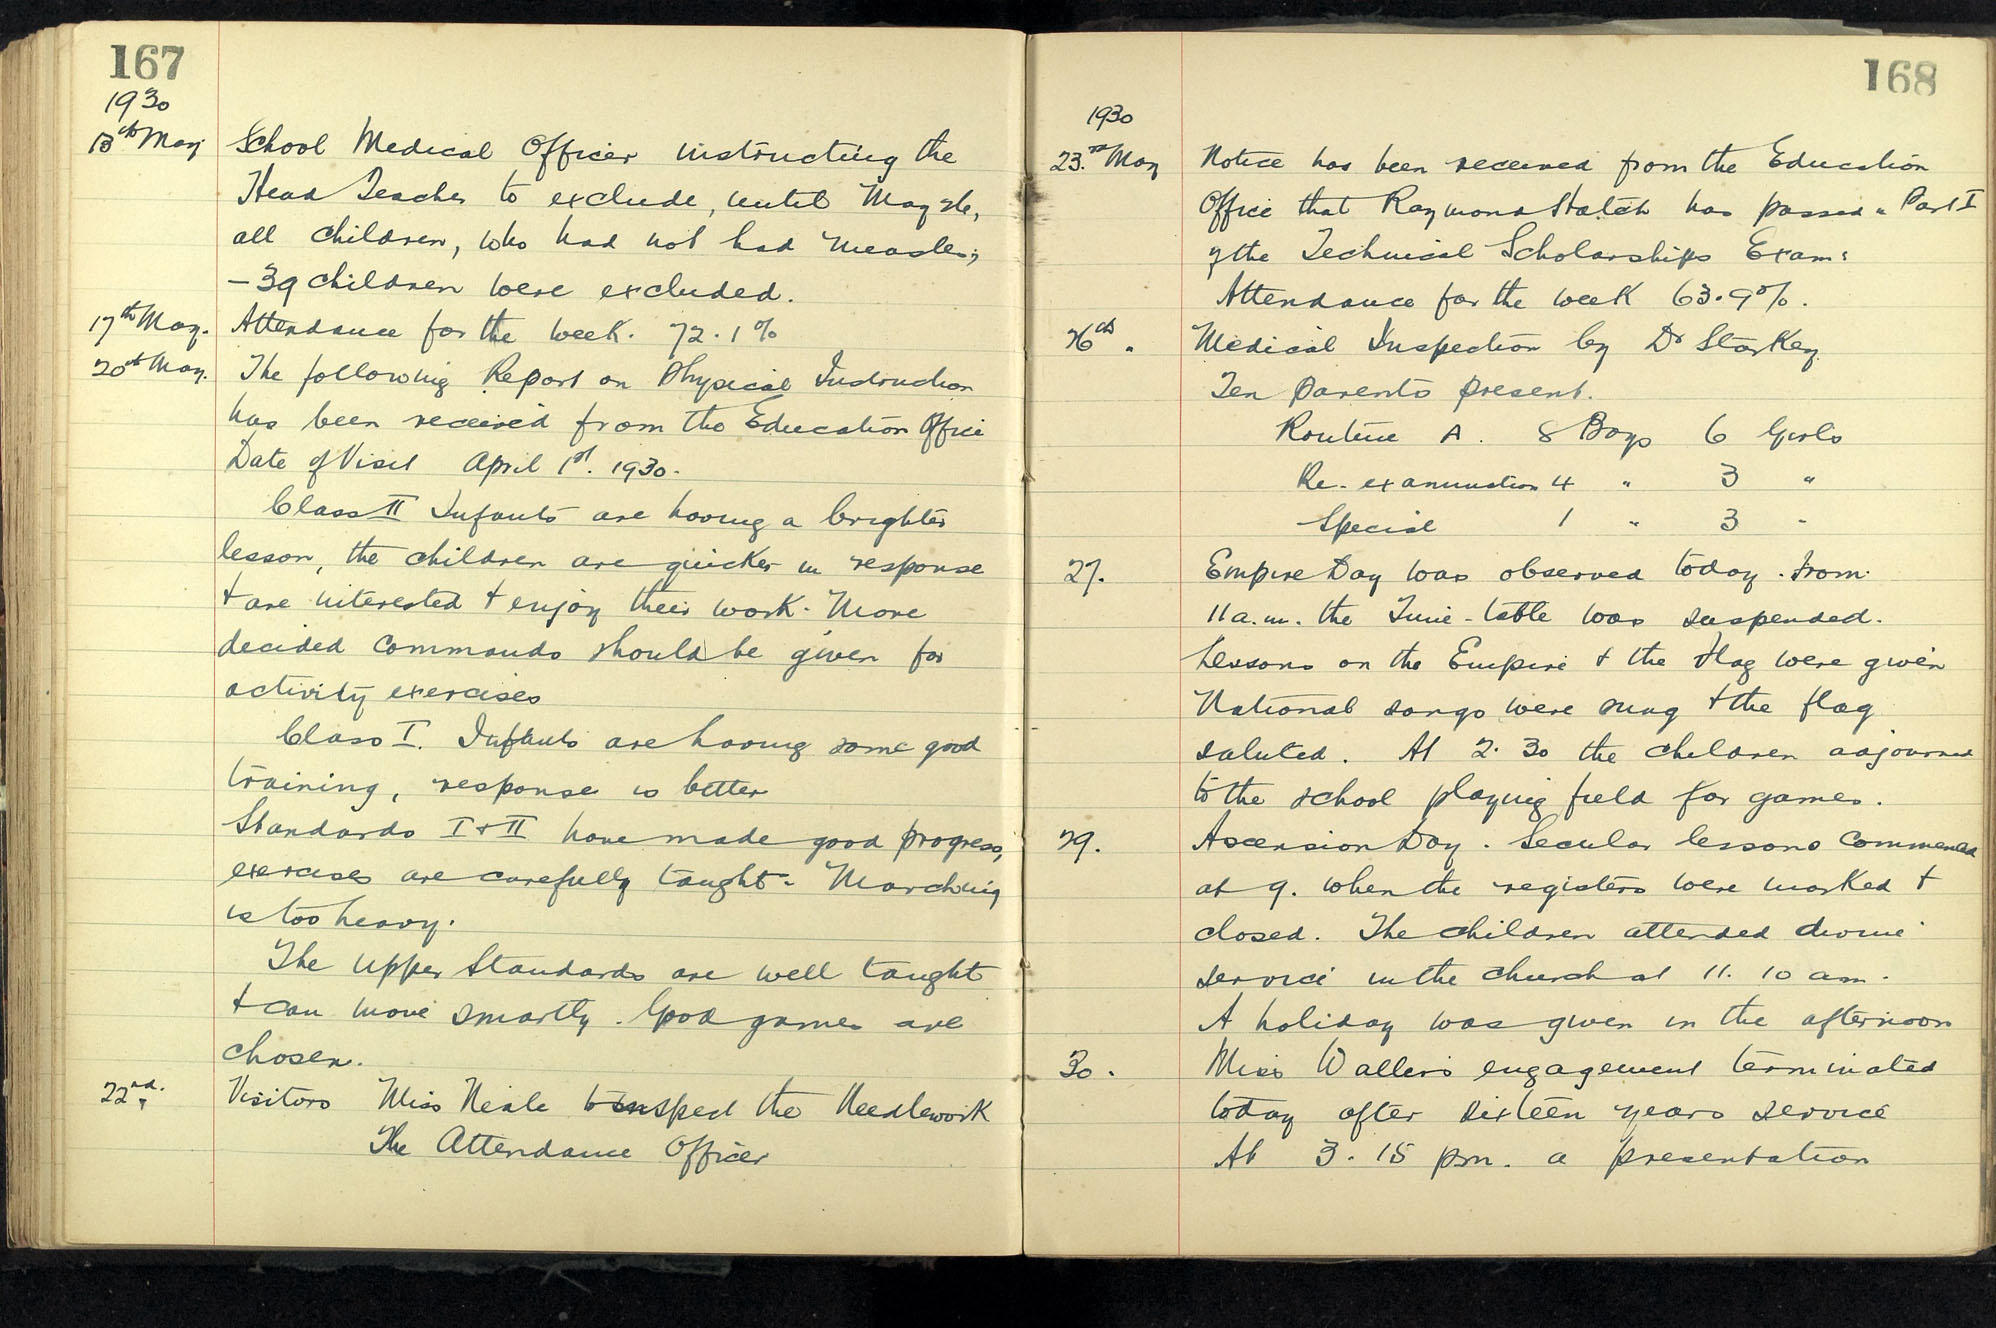 167
1930
13th May School Medical Officer instructing the
Head Teacher to exclude, until May 26,
all children, who had not had measles;
- 39 children were excluded.
17th May. Attendance for the week. 72.1%
20th May. The following Report on Physical Instruction
has been received from the Education Office
Date of Visit April 1st. 1930.
Class II Infants are having a brighter
lesson, the children are quicker in response
+ are interested + enjoy their work. More
decided commands should be given for
activity exercises
Class I. Infants are having some good
training, response is better
Standards I + II have made good progress,
exercises are carefully taught. Marching
is too heavy.
The upper Standards are well taught
+ can move smartly. Good games are
chosen.
22nd. Visitors Miss Neale to inspect the Needlework
The Attendance Officer
168
1930
23rd May Notice has been received from the Education
Office that Raymond Hatch has passed "Part I
of the Technical Scholarships Exam:
Attendance for the week 63.9%.
26th " Medical Inspection by Dr Starkey.
Ten parents present.
Routine A. 8 Boys 6 Girls
Re-examination 4 " 3 "
Special 1 " 3 "
27. Empire Day was observed today. From
11 a.m. the Time-table was suspended.
Lessons on the Empire + the Flag were given
National songs were sung + the flag
saluted. At 2.30 the children adjourned
to the school playing field for games.
29. Ascension Day. Secular lessons commenced
at 9. when the registers were marked +
closed. The children attended divine
service in the church at 11.10 am.
A holiday was given in the afternoon
30. Miss Waller's engagement terminated
today after sixteen years service
At 3.15 pm. a presentation